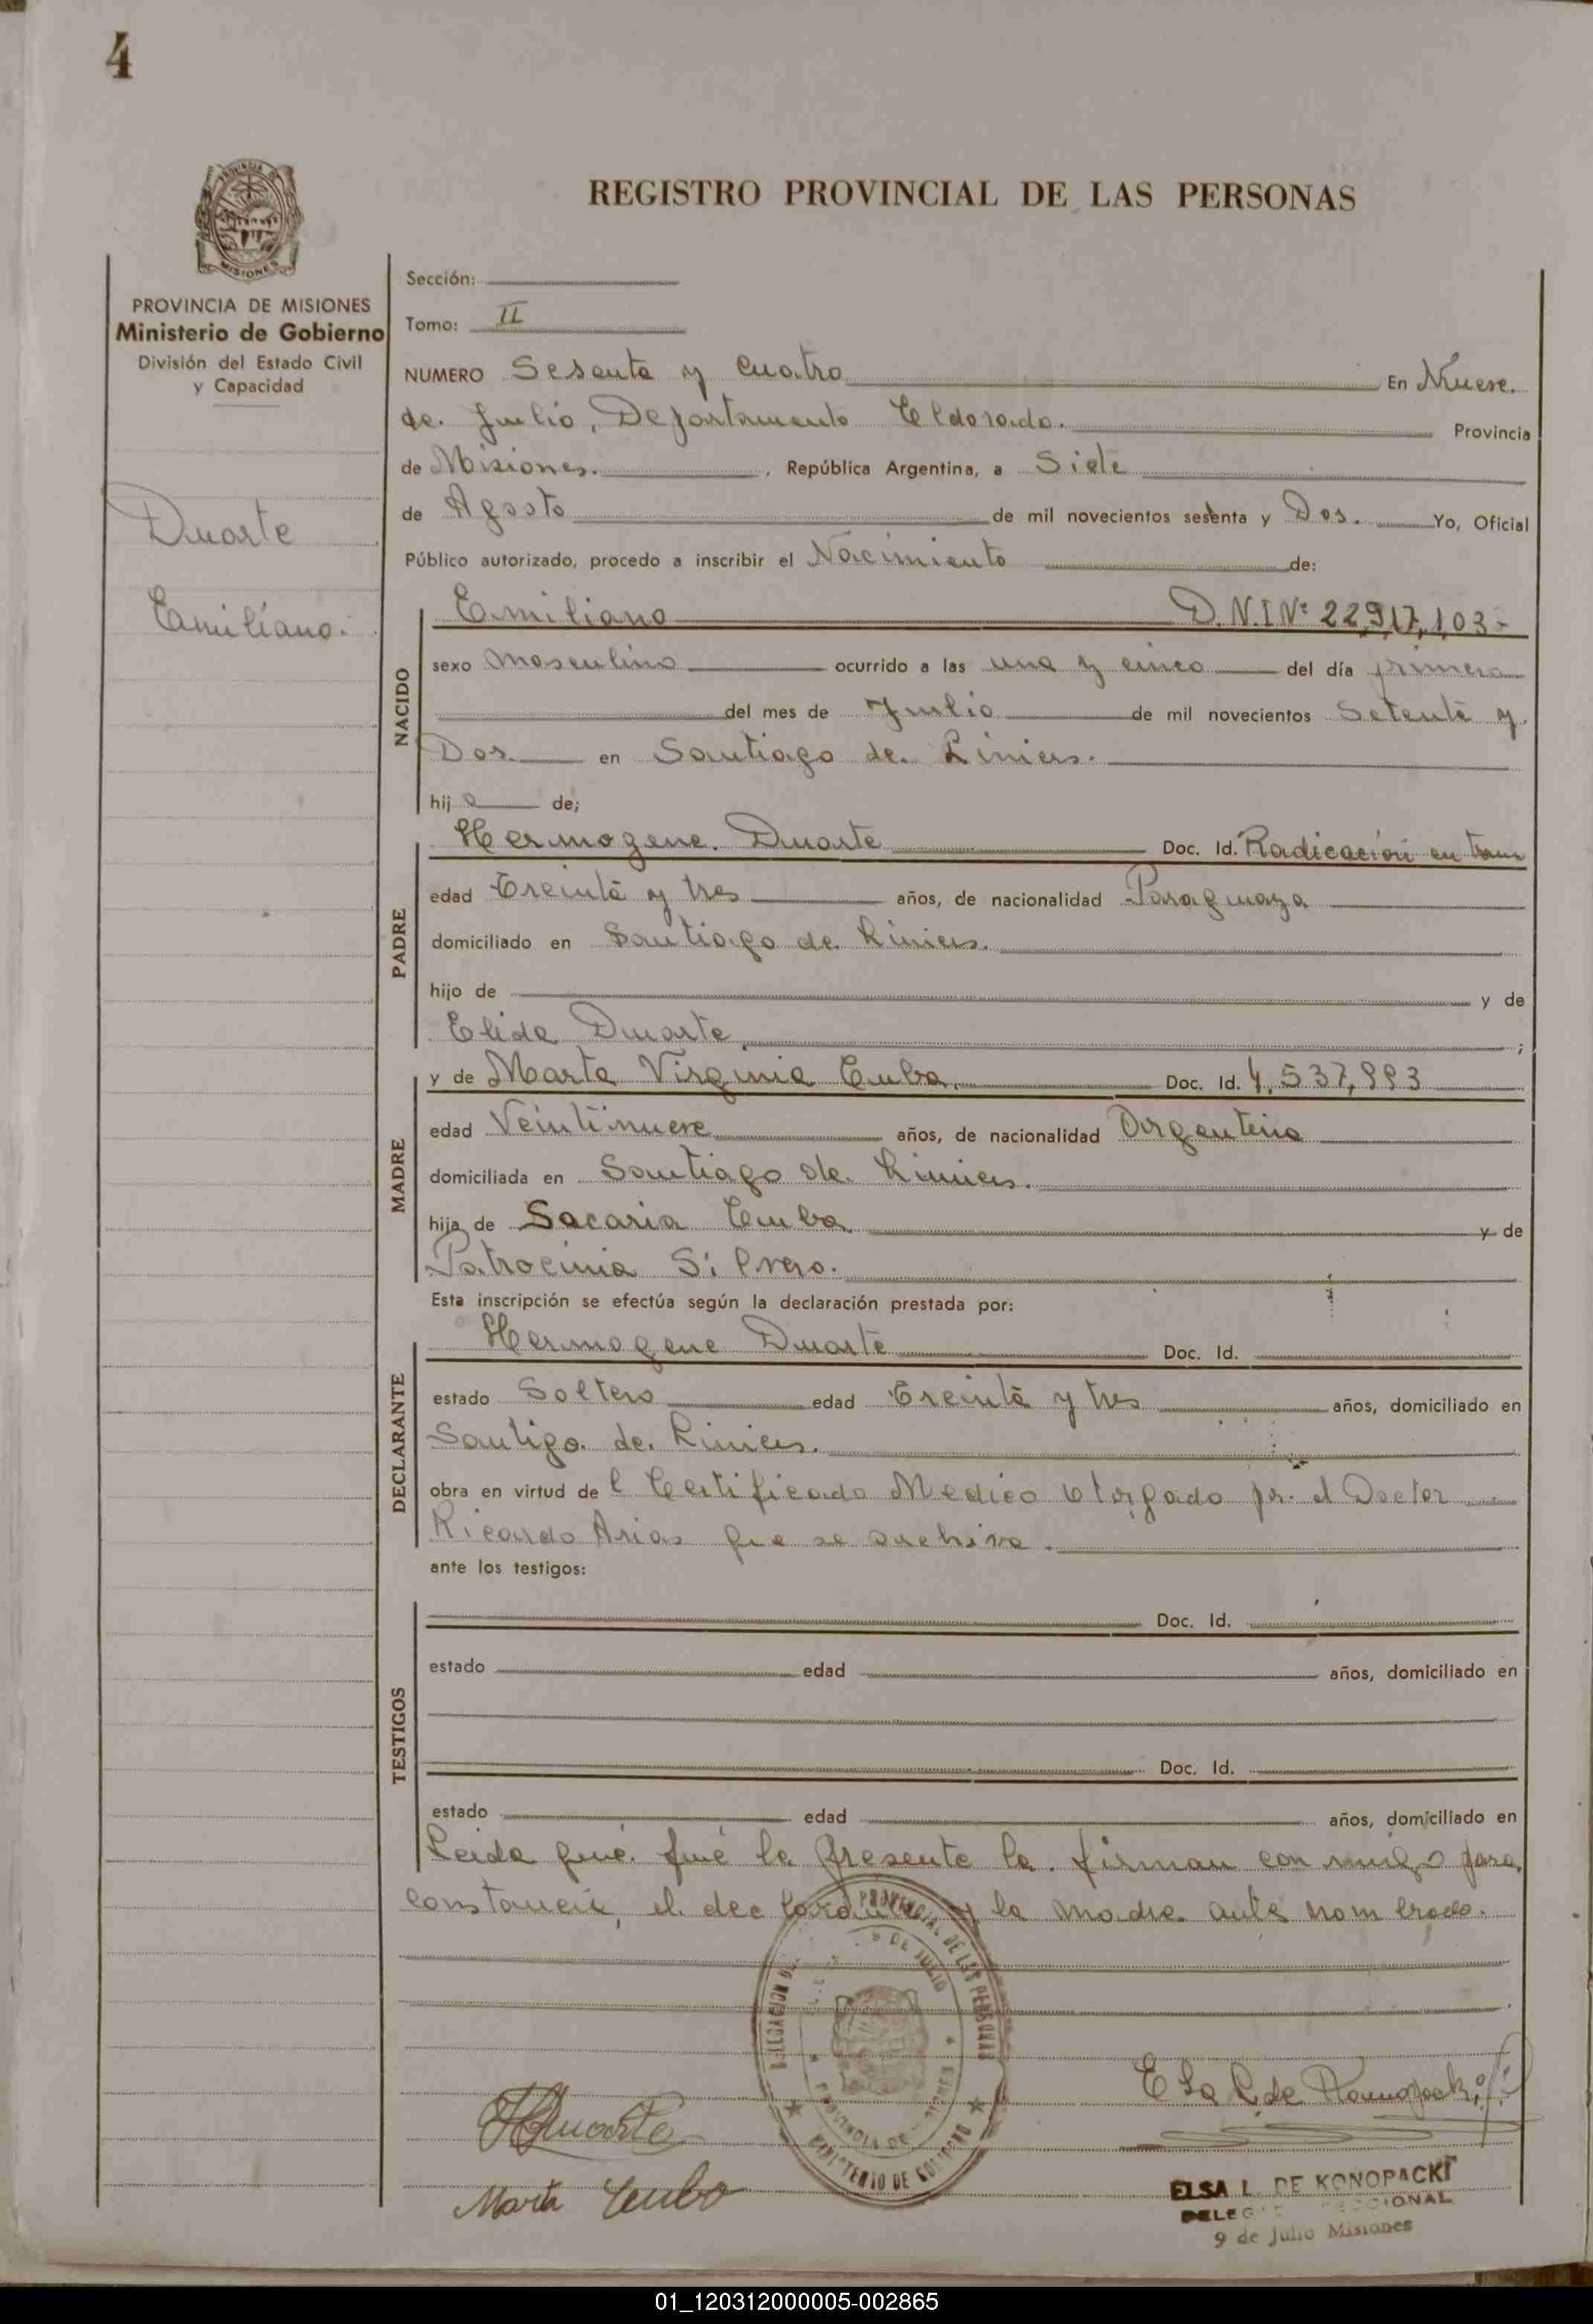 4
PROVINCIA DE MISIONES
Ministerio de Gobierno
División del Estado Civil
y Capacidad
Duarte
Emiliano.
REGISTRO PROVINCIAL DE LAS PERSONAS
Sección:
Tomo: II
NUMERO Sesenta y Cuatro En Nueve
de Julio, Departamento Eldorado. Provincia
de Misiones. , República Argentina, a Siete
de Agosto de mil novecientos sesenta y Dos. Yo, Oficial
Público autorizado, procedo a inscribir el Nacimiento de:
NACIDO
Emiliano D.N.I Nº 22,917,103-
sexo Masculino ocurrido a las una y cinco del día primero
del mes de Julio de mil novecientos Setenta y
Dos. en Santiago de Liniers.
hij o de;
PADRE
Hermogene Duarte Doc. Id. Radicación en
edad Treinta y tres años, de nacionalidad Paraguaya
domiciliado en Santiago de Liniers.
hijo de y de
Elida Duarte ;
MADRE
y de Marta Virginia Cuba. Doc. Id. 4.537,993
edad Veintinueve años, de nacionalidad Argentina
domiciliada en Santiago de Liniers.
hija de Sacaria Cuba y de
Patrocinia Silvero.
Esta inscripción se efectúa según la declaración prestada por:
DECLARANTE
Hermogene Duarte Doc. Id.
estado Soltero edad Treinta y tres años, domiciliado en
Santigo de Liniers.
obra en virtud de l Certificado Medico otorgado pr. el Doctor
Ricardo Arias que se archiva.
ante los testigos:
TESTIGOS
Doc. Id.
estado edad años, domiciliado en
Doc. Id.
estado edad años, domiciliado en
Leida que fué la presente la firman con migo para
constancia, el declarante y la madre ante nombrado.
DELEGACION DEL PROVINCIAL DE LAS PERSONAS
9 DE JULIO
PROVINCIA DE MISIONES
MINISTERIO DE GOBIERNO
HDuarte
Marta Cuba
Elsa L. de Konopacki
ELSA L. DE KONOPACKI
9 de Julio Misiones
01_120312000005-002865